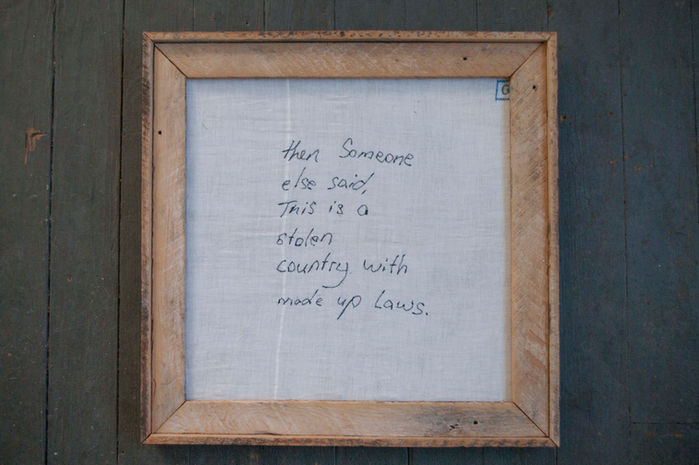 G
then Someone
else said,
This is a
stolen
country with
made up Laws.